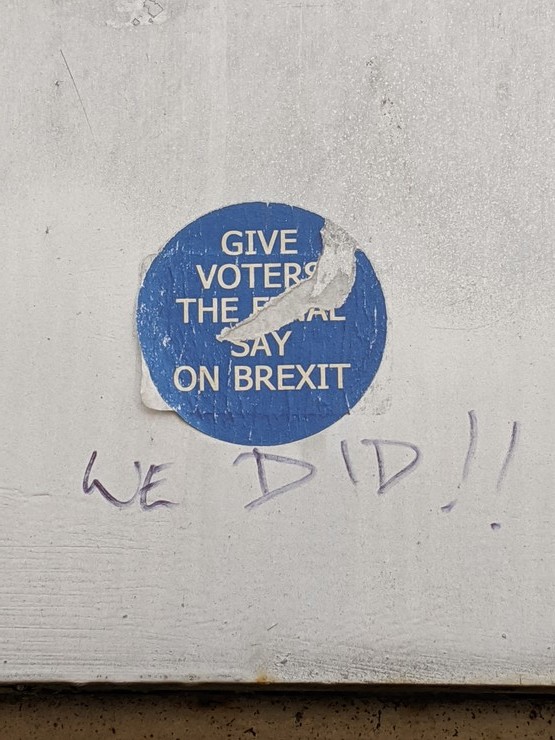 GIVE
VOTERS
THE FINAL
SAY
ON BREXIT
WE DID!!